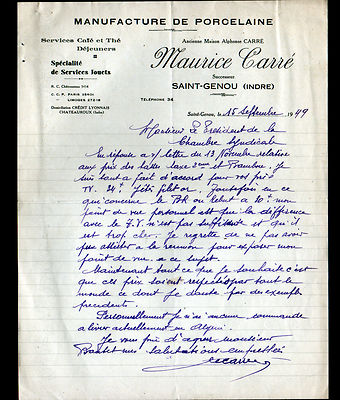 MANUFACTURE DE PORCELAINE
Services Café et Thé
Déjeuners
Spécialité
de Services Jouets
R. C. Châteauroux
C. C. P. PARIS
LIMOGES 272 18
Domiciliation CRÉDIT LYONNAIS
CHATEAUROUX (Indre)
Ancienne Maison Alphonse CARRÉ
Maurice Carré
Successeur
SAINT-GENOU (INDRE)
TÉLÉPHONE 34
Saint-Genou, le 15 Septembre 1949
Monsieur le Président de la
Chambre Syndicale
En réponse a v/ lettre du 13 Novembre relative
aux prix des tasses
suis tout a fait d'accord pour vos prix
Toutefois en ce
qui concerne le a 10% mon
point de vue personnel est que la différence
avec le n'est pas suffisante et qu'il
est trop cher. Je regrette de ne pas avoir
pu assister a la reunion pour exposer mon
point de vue a ce sujet.
Maintenant tout ce que je souhaite c'est
que ces prix soient respectés par tout le
monde ce dont je doute par des exemples
precedents.
Personnellement je n'ai aucune commande
a livrer actuellement en
Je vous prie d'agreer monsieur
mes salutations empressées